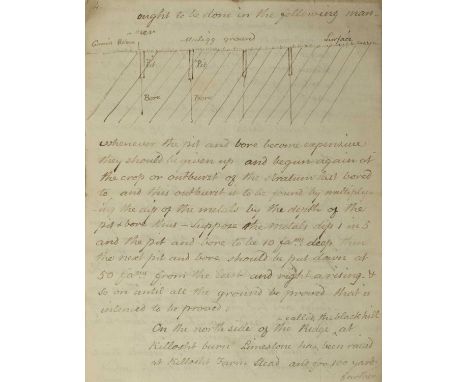 ought to be done in the following man-
ner
Mossy ground
Surface
Pit
Pit
Bore
Bore
whenever the pit and bore become expensive
they should be given up and begun again at
the crop or outburst of the stratum last bored
to and this outburst is to be found by multiply-
ing the dip of the metals by the depth of the
pit & bore thus - Suppose the metals dip 1 in 5
and the pit and bore to be 10 fams deep then
the next pit and bore should be put down at
50 fams from the last and right arising &
so on until all the ground be proved that is
intended to be proved.
called the black hill
On the north side of the Ridge at
Killosht burn Limestone has been raised
at Killosht Farm Stead and for 100 yards
farther